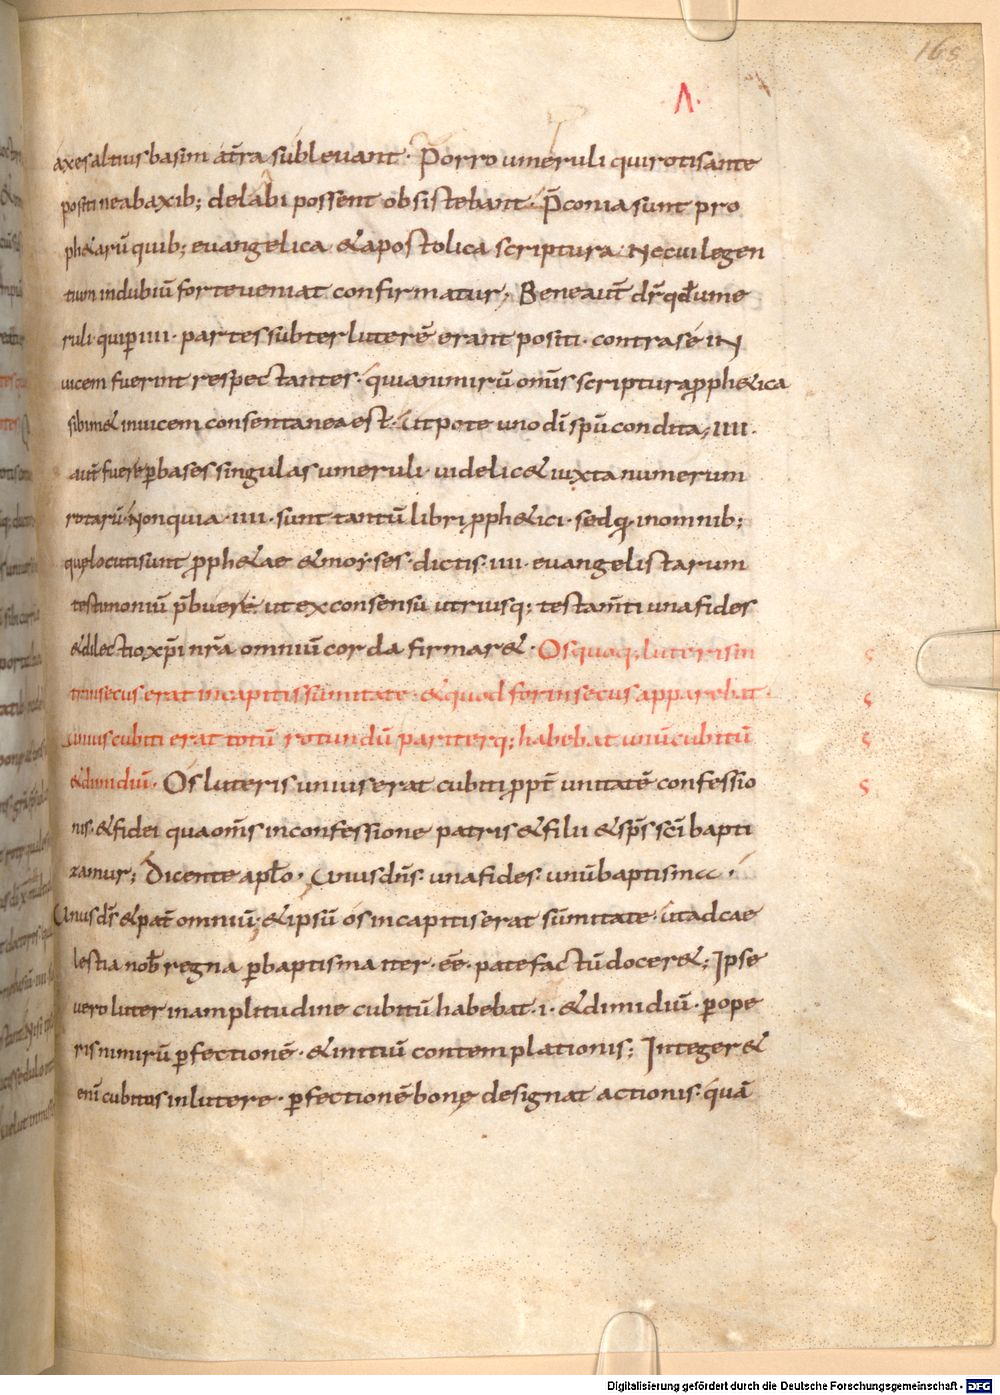 165
Λ.
axes altius basim a tr̄a sublevant · Porro umeruli qui rotis ante
positi ne ab axib; delabi possent obsistebant · P̄conia sunt pro
ph&arū quib; evangelica & apostolica scriptura · Ne cui legen
tium in dubiū forte veniat confirmatur; Bene aut̄ dr̄ qđ ume
ruli · qui p̱ IIII · partes subter luterē erant positi · contra sé in
vicem fuerint respectantes · quia nimirū om̄s scriptura ꝓph&ica
sibim& invicem consentanea est · Utpote uno dī sp̄u condita; IIII ·
aut̄ fuere ꝑ bases singulas umeruli · videlic& iuxta numerum
rotarū · Non quia · IIII · sunt tantū libri ꝓph&ici · sed q · in omnib;
quę locuti sunt ꝓph&ae & moẏses · dictis · IIII · evangelistarum
testimoniū p̄buere · ut ex consensu utriusq; testam̄ti una fides
& dilectio xp̄i nr̄a omniū corda firmar& · Os quoq; luteris in
trinsecus erat in capitis summitate · & quod forinsecus apparebat ·
Unius cubiti erat totū rotundū pariterq; habebat unū cubitū
& dimidiū · Os luteris unius erat cubiti ꝓpt̄ unitatē confessio
nis · & fidei qua om̄s in confessione patris & filii & sp̄s sc̄i bapti
zamur; Dicente apl̄o · Unus dn̄s · una fides · unū baptisma ·
Unus dī & pat̄ omniū; & ipsū os in capitis erat sūmitate · ut ad cae
lestia nob̄ regna ꝑ baptisma iter · ēē · patefactū docer&; Ipse
vero luter in amplitudine cubitū habebat · I · & dimidiū · ꝑ ope
ris nimirū ꝑfectionē · & initiū contemplationis; Integer &
enī cubitus in lutere · ꝑfectionē bonę designat actionis · quā
Digitalisierung gefördert durch die Deutsche Forschungsgemeinschaft - DFG